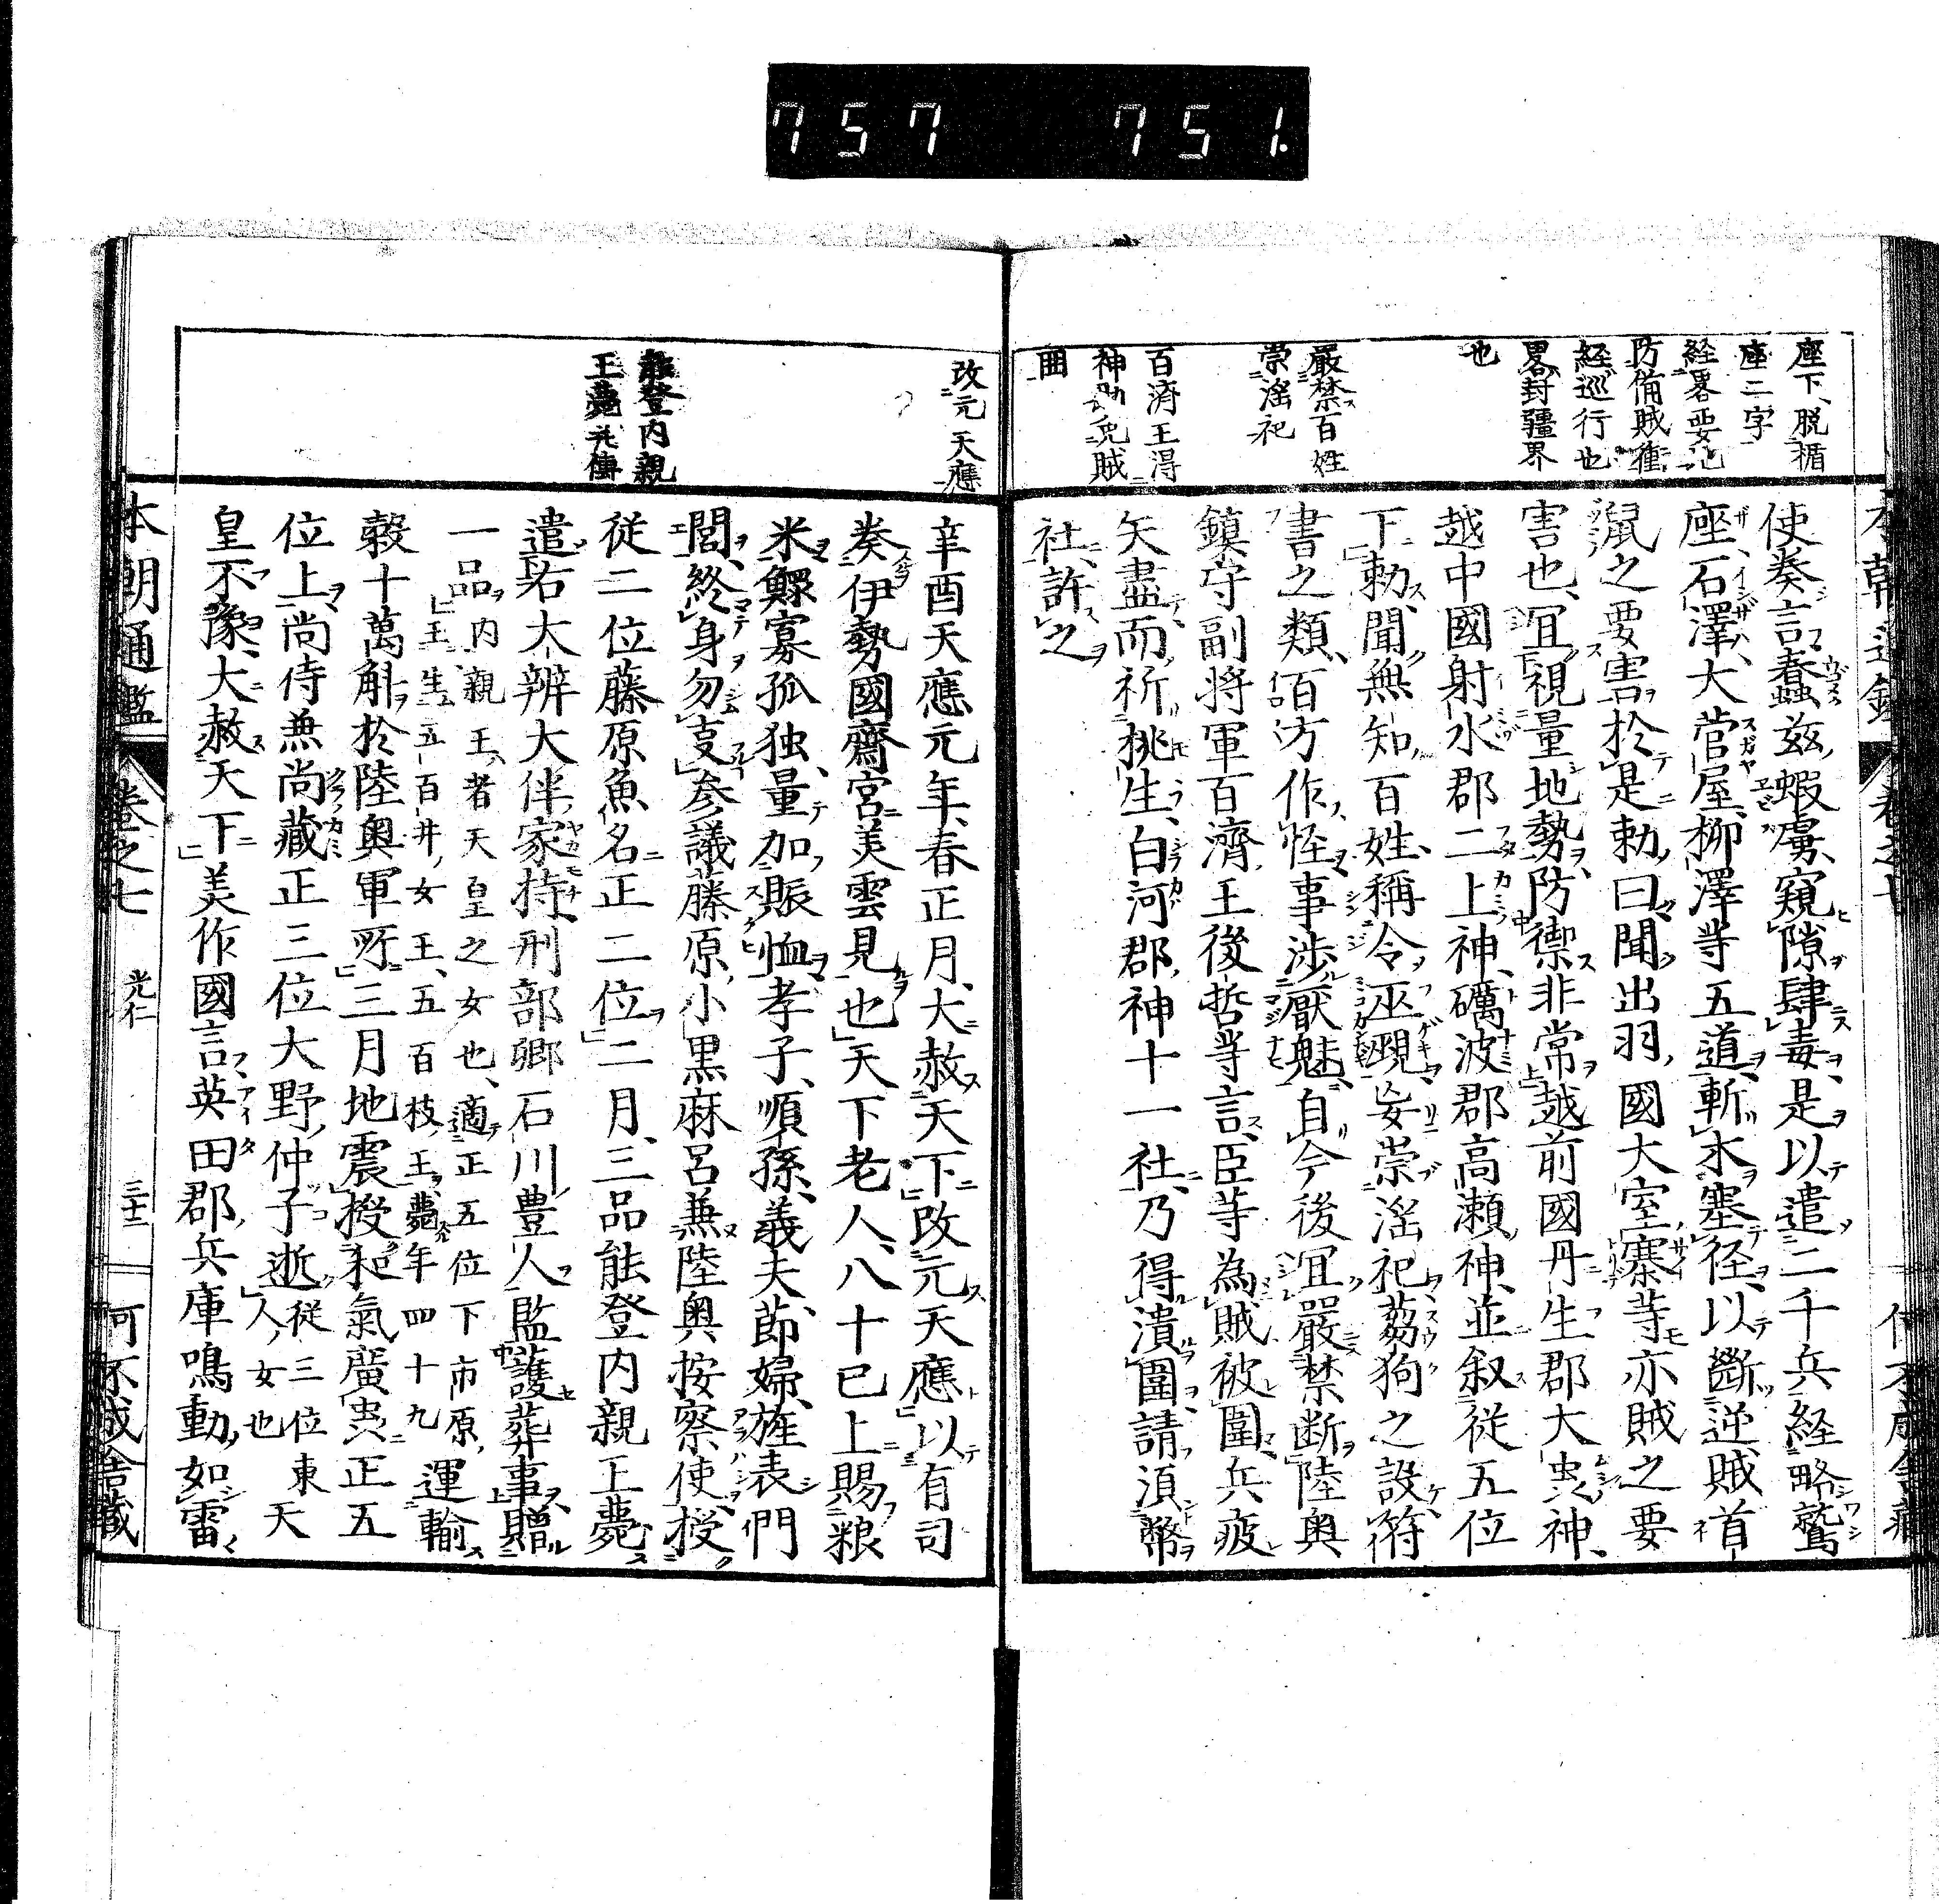 757 751.
座下、脱楯
座二字
経畧要地
防備賊衝
経巡行也
畧封疆界
也
嚴禁百姓
崇滛祀
百濟王得
神助免賊
囲
使奏言蠢茲蝦虜、窺隙肆毒、是以遣二千兵経略鷲
座、石澤、大菅屋、柳澤等五道、斬木塞径、以斷逆賊首
鼠之要害、於是勅曰、聞出羽國大室寨等亦賊之要
害也、冝視量地勢、防禦非常、越前國丹生郡大虫神、
越中國射水郡二上神、礪波郡高瀬神、並叙従五位
下、勅、聞無知百姓、稱令巫覡妄崇滛祀、蒭狗之設、符
書之類、百方作怪、事渉厭魅、自今後冝嚴禁断、陸奥
鎮守副将軍百濟王俊哲等言、臣等為賊被圍、兵疲
矢盡而祈桃生、白河郡神十一社、乃得潰圍、請湏幣
社、許之
改元天應
能登内親
王薨并傳
辛酉天應元年、春正月、大赦天下、改元天應、以有司
奏伊勢國齋宮美雲見也、天下老人、八十已上賜粮
米、鰥寡孤独、量加賑恤、孝子、順孫、義夫、節婦、旌表門
閭、終身勿事、参議藤原小黒麻呂兼陸奥按察使、授
従二位藤原魚名正二位、二月、三品能登内親王薨、
遣右大辨大伴家持、刑部卿石川豊人監護葬事、贈
一品、内親王者天皇之女也、適正五位下市原
王、生五百井女王、五百枝王、薨年四十九運輸
穀十萬斛於陸奥軍所、三月地震、授和氣廣虫正五
位上、尚侍兼尚藏正三位大野仲子逝、従三位東
人女也天
皇不豫、大赦天下、美作國言、英田郡兵庫鳴動、如雷
本朝通鑑
卷之七
光仁
三十二